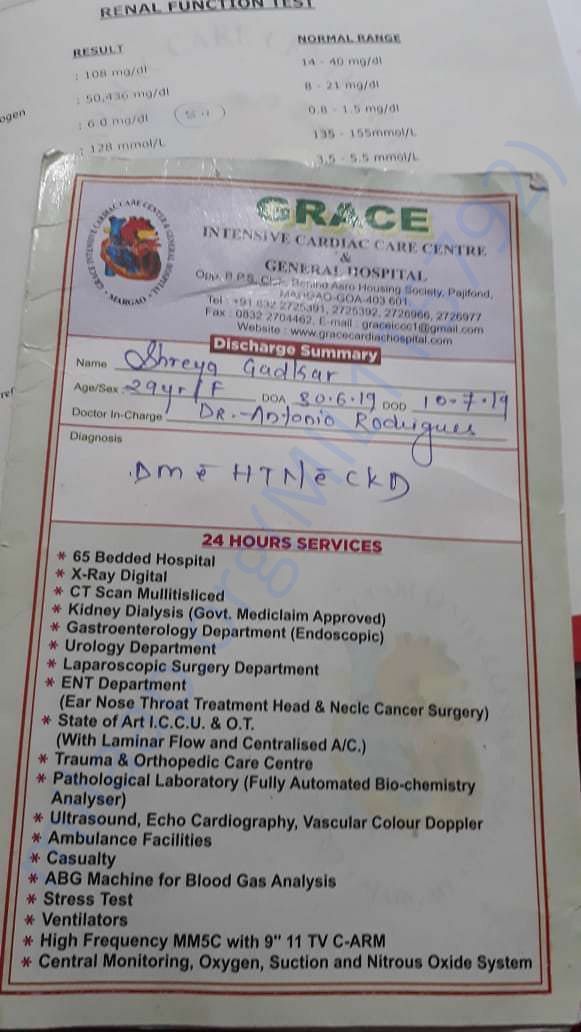 RENAL FUNCTION TEST
RESULT NORMAL RANGE
: 108 mg/dl 14 - 40 mg/dl
: 50,436 mg/dl 8 - 21 mg/dl
: 6.0 mg/dl 0.8 - 1.5 mg/dl
: 128 mmol/L 135 - 155mmol/L
3.5 - 5.5 mmol/L
GRACE INTENSIVE CARDIAC CARE CENTER & GENERAL HOSPITAL
MARGAO
GRACE
INTENSIVE CARDIAC CARE CENTRE
&
GENERAL HOSPITAL
Opp. B.P.S. Club, Aaro Housing Society, Pajifond,
MARGAO-GOA-403 601.
Tel : +91 832 2725391, 2725392, 2726966, 2726977
Fax : 0832 2704462, E-mail : graceiccc1@gmail.com
Website : www.gracecardiachospital.com
Discharge Summary
Name Shreya Gadkar
Age/Sex 29yr/F DOA 30.6.19 DOD 10.7.19
Doctor In-Charge DR. Antonio Rodrigues
Diagnosis
DM c̄ HTN c̄ CKD
24 HOURS SERVICES
* 65 Bedded Hospital
* X-Ray Digital
* CT Scan Mullitisliced
* Kidney Dialysis (Govt. Mediclaim Approved)
* Gastroenterology Department (Endoscopic)
* Urology Department
* Laparoscopic Surgery Department
* ENT Department
(Ear Nose Throat Treatment Head & Neclc Cancer Surgery)
* State of Art I.C.C.U. & O.T.
(With Laminar Flow and Centralised A/C.)
* Trauma & Orthopedic Care Centre
* Pathological Laboratory (Fully Automated Bio-chemistry
Analyser)
* Ultrasound, Echo Cardiography, Vascular Colour Doppler
* Ambulance Facilities
* Casualty
* ABG Machine for Blood Gas Analysis
* Stress Test
* Ventilators
* High Frequency MM5C with 9" 11 TV C-ARM
* Central Monitoring, Oxygen, Suction and Nitrous Oxide System